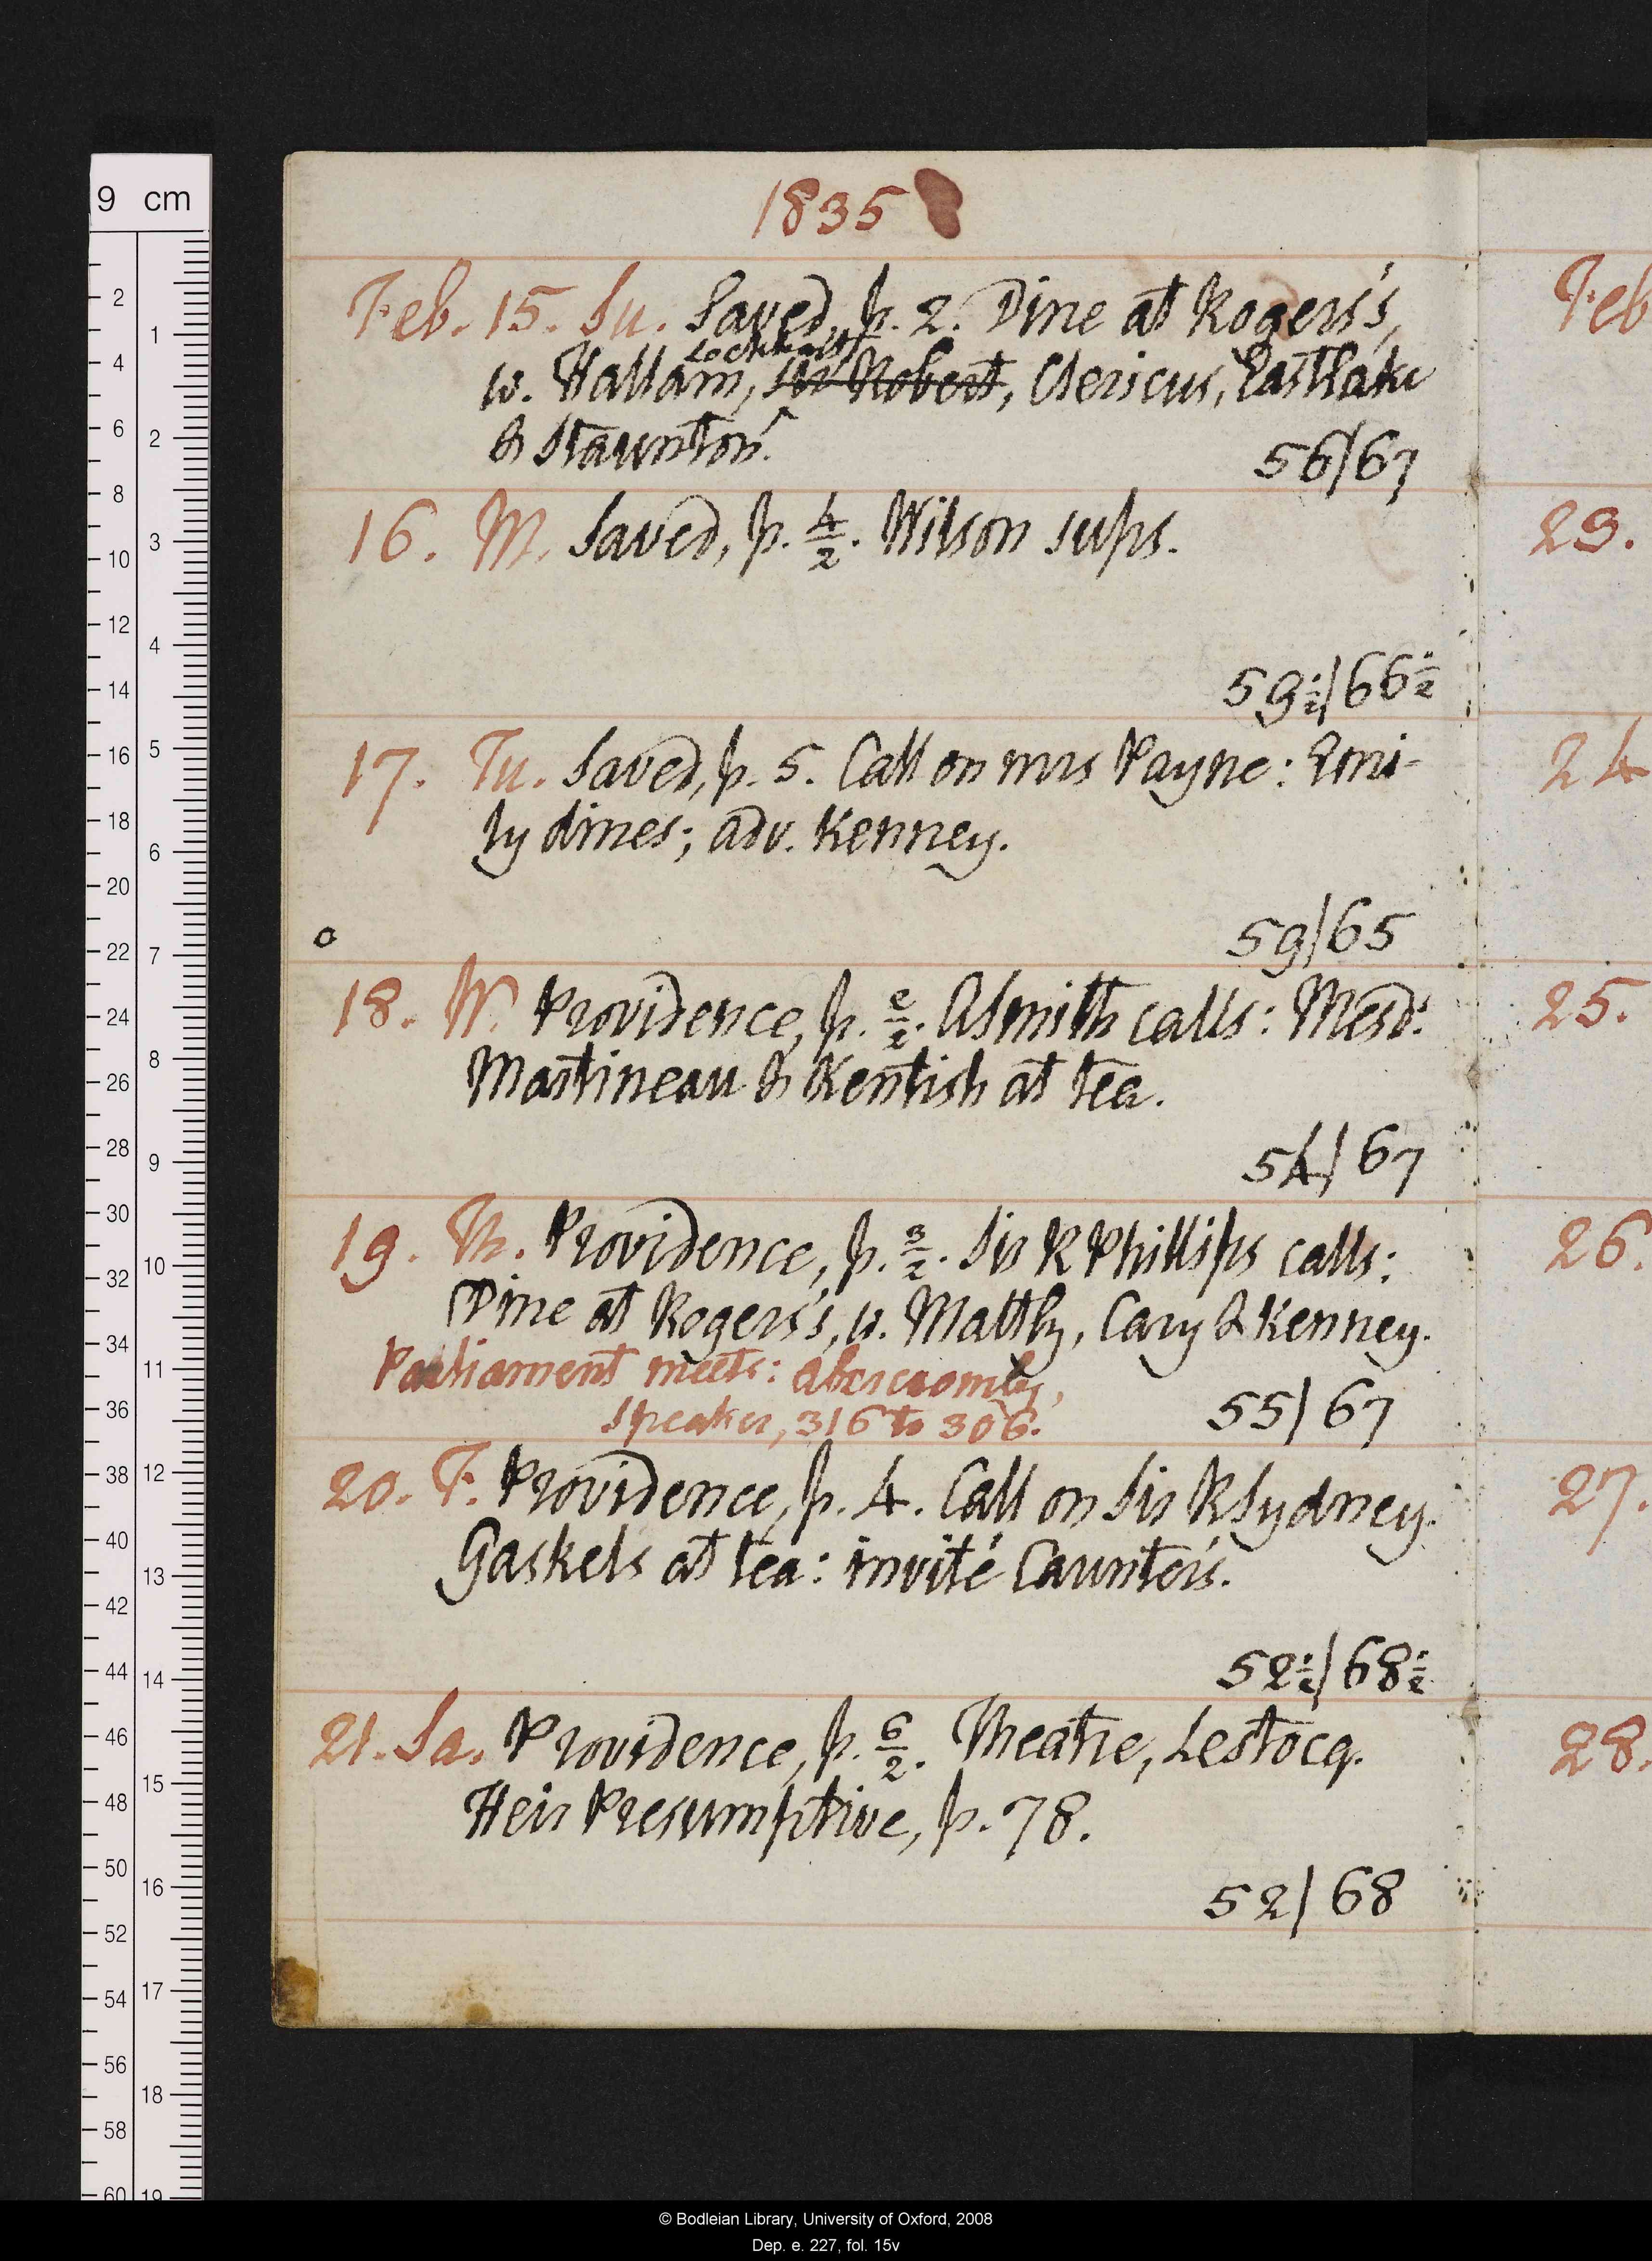 1835
Feb. 15. Su. Saved, p. 2. Dine at Rogers's,
Lockhart
w. Hallam, Sir Robert, Clericus, Eastlake
& Staunton.
56/67
16. M. Saved, p. 4/2. Wilson sups.
59½/66½
17. Tu. Saved, p. 5. Call on mrs Payne: Emi-
ly dines; adv. Kenney.
59/65
18. W. Providence, p. 2/2. ASmith calls: Mesd.
Martineau & Kentish at tea.
54/67
19. Th. Providence, p. 3/2. Sir R Phillips calls:
Dine at Rogers's, w. Maltby, Cary & Kenney.
Parliament meets: Abercromby,
speaker, 316 to 306.
55/67
20. F. Providence, p. 4. Call on Sir R Sydney.
Gaskels at tea: invité Caunter's.
52½/68½
21. Sa. Providence, p. 6/2. Theatre, Lestocq.
Heir Presumptive, p. 78.
52/68
Feb
23.
24
25.
26.
27.
28.
9 cm
2 4 6 8 10 12 14 16 18 20 22 24 26 28 30 32 34 36 38 40 42 44 46 48 50 52 54 56 58 60
1 2 3 4 5 6 7 8 9 10 11 12 13 14 15 16 17 18 19
© Bodleian Library, University of Oxford, 2008
Dep. e. 227, fol. 15v